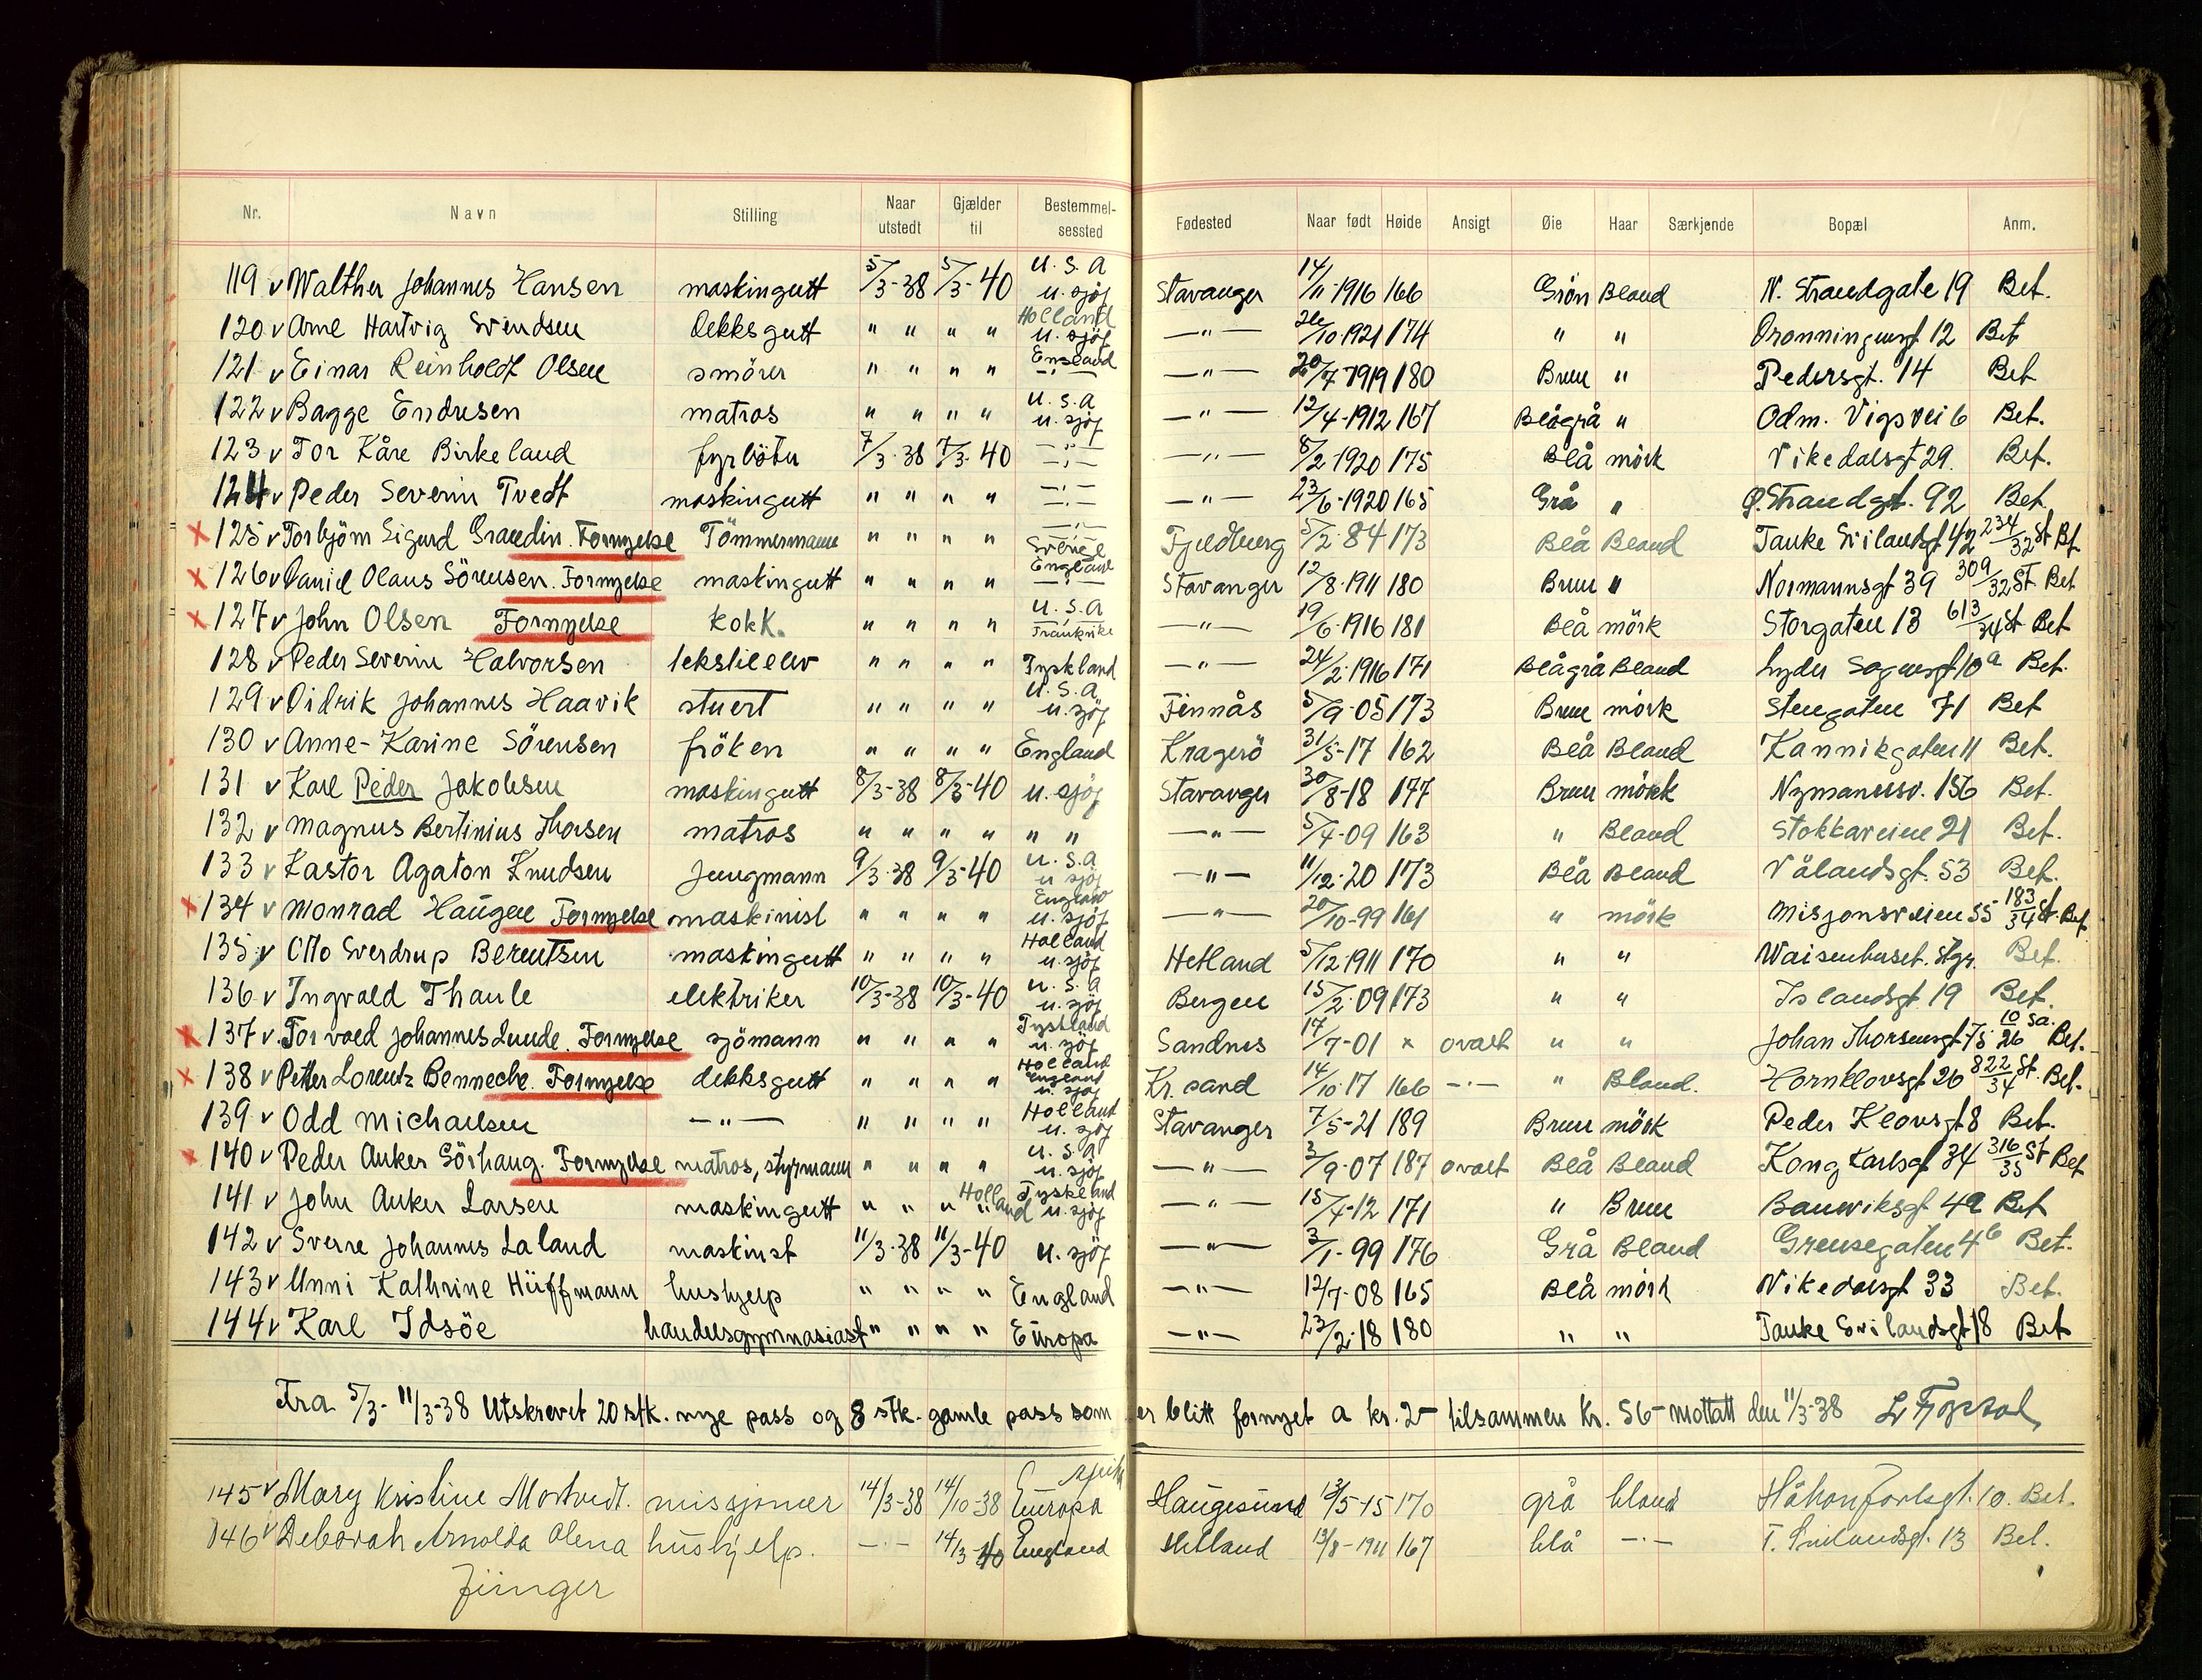 Nr. Navn Stilling Naar utstedt Gjælder til Bestemmelsessted Fødested Naar født Høide Ansigt Øie Haar Særkjende Bopæl Anm.
119 v Walther Johannes Hansen maskingutt 5/3-38 5/3-40 U.S.A u. sjöf Stavanger 14/11-1916 166 Grön Blond N. Strandgate 19 Bet.
120 v Arne Hartvig Svendsen Dekksgutt " " " " Holland u. sjöf —"— 26/10-1921 174 " " Dronningensgt 12 Bet
121 v Einar Reinholdt Olsen smörer " " " " England —"— —"— 20/7-1919 180 Brun " Pedersgt. 14 Bet
122 v Bagge Endresen matros " " " " U.S.A u. sjöf —"— 12/4-1912 167 Blågrå " Adm. Vigsvei 6 Bet.
123 v Tor Kåre Birkeland fyrböter 7/3-38 7/3-40 —"— —"— —"— 8/2-1920 175 Blå mörk Vikedalsgt 29. Bet.
124 v Peder Severin Tvedt maskingutt " " " " —"— —"— —"— 23/6-1920 165 Grå " Ø. Strandgt. 92 Bet.
x 125 v Torbjörn Sigurd Grandin. Fornyelse Tömmermann " " " " —"— Sverige Fjeldberg 5/2-84 173 Blå Blond Tanke Svilandsgt 42 234/32 St Bt
x 126 v Daniel Olaus Sörensen. Fornyelse maskingutt " " " " England —"— Stavanger 12/8-1911 180 Brun " Normannsgt 39 309/32 St Bet
x 127 v John Olsen Fornyelse kokk. " " " " U.S.A —"— Frankrike —"— 19/6-1916 181 Blå mörk Storgaten 13 613/34 St Bet
128 v Peder Severin Halvorsen tekstilelev " " " " Tyskland —"— 24/2-1916 171 Blågrå Blond Lyder Sagensgt 10 a Bet.
129 v Didrik Johannes Haavik stuert " " " " U.S.A. u. sjöf Finnås 5/9-05 173 Brun mörk Stengaten 71 Bet
130 v Anne-Karine Sörensen fröken " " " " England Kragerö 31/5-17 162 Blå Blond Kannikgaten 11 Bet.
131 v Karl Peder Jakobsen maskingutt 8/3-38 8/3-40 u. sjöf Stavanger 30/8-18 177 Brun mörk Nymansv. 156 Bet.
132 v Magnus Bertinius Thorsen matros " " " " " " —"— 5/4-09 163 " Blond Stokkaveien 21 Bet.
133 v Kastor Agaton Knudsen Jungmann 9/3-38 9/3-40 U.S.A u sjöf —"— 11/12-20 173 Blå Blond Vålandsgt. 53 Bet.
x 134 v Monrad Haugen Fornyelse maskinist " " " " England u. sjöf —"— 20/10-99 161 " mörk Misjonsveien 55 183/34 St. Bet
135 v Otto Sverdrup Berentsen maskingutt " " " " Holland u. sjöf Hetland 5/12-1911 170 " " Waisenhuset. Stgr. Bet.
136 v Ingvald Thaule elektriker 10/3-38 10/3-40 U.S.A u. sjöf Bergen 15/2-09 173 " " Islandsgt 19 Bet.
x 137 v Torvald Johannes Lunde. Fornyelse sjömann " " " " Tyskland u. sjöf Sandnes 17/7-01 x ovalt " " Johan Thorsensgt 75 10/26 Sa. Bet.
x 138 v Petter Lorentz Benneche. Fornyelse dekksgutt " " " " Holland England u. sjöf Kr. sand 14/10-17 166 —"— " Blond. Hornklovsgt 26 822/34 St. Bet.
139 v Odd Michaelsen —"— " " " " Holland u. sjöf Stavanger 7/5-21 189 Brun mörk Peder Klowsgt 8 Bet.
x 140 v Peder Anker Sörhaug. Fornyelse matros, styrmann " " " " U.S.A u. sjöf —"— 3/9-07 187 ovalt Blå Blond Kong Karlsgt 34 316/35 St Bet
141 v John Anker Larsen maskingutt " " " " Holland Tyskland u. sjöf —"— 15/4-12 171 " Brun Banviksgt 42 Bet
142 v Sverre Johannes Laland maskinst 11/3-38 11/3-40 u. sjöf —"— 3/1-99 176 Grå Blond Grensegaten 4 b Bet.
143 v Unni Kathrine Hüffmann hushjelp " " " " England —"— 12/7-08 165 Blå mörk Vikedalsgt 33 Bet.
144 v Karl Idsöe handelsgymnasiast " " " " Europa —"— 23/2-18 180 " " Tanke Svilandsgt 18 Bet
Fra 5/3-11/3-38 Utskrevet 20 stk. nye pass og 8 stk. gamle pass som er blitt fornyet a kr. 2- tilsammen kr. 56- mottatt den 11/3-38
145 v Mary Kristine Mortvedt. missjonær 14/3-38 14/10-38 Europa Afrika Haugesund 13/5-15 170 grå blond Håkon Jarlsgt. 10. Bet.
146 v Deborah Arnolda Olena hushjelp. —"— 14/3-40 England Hetland 13/8-1911 167 blå —"— T. Svilandsgt. 13 Bet.
Jünger